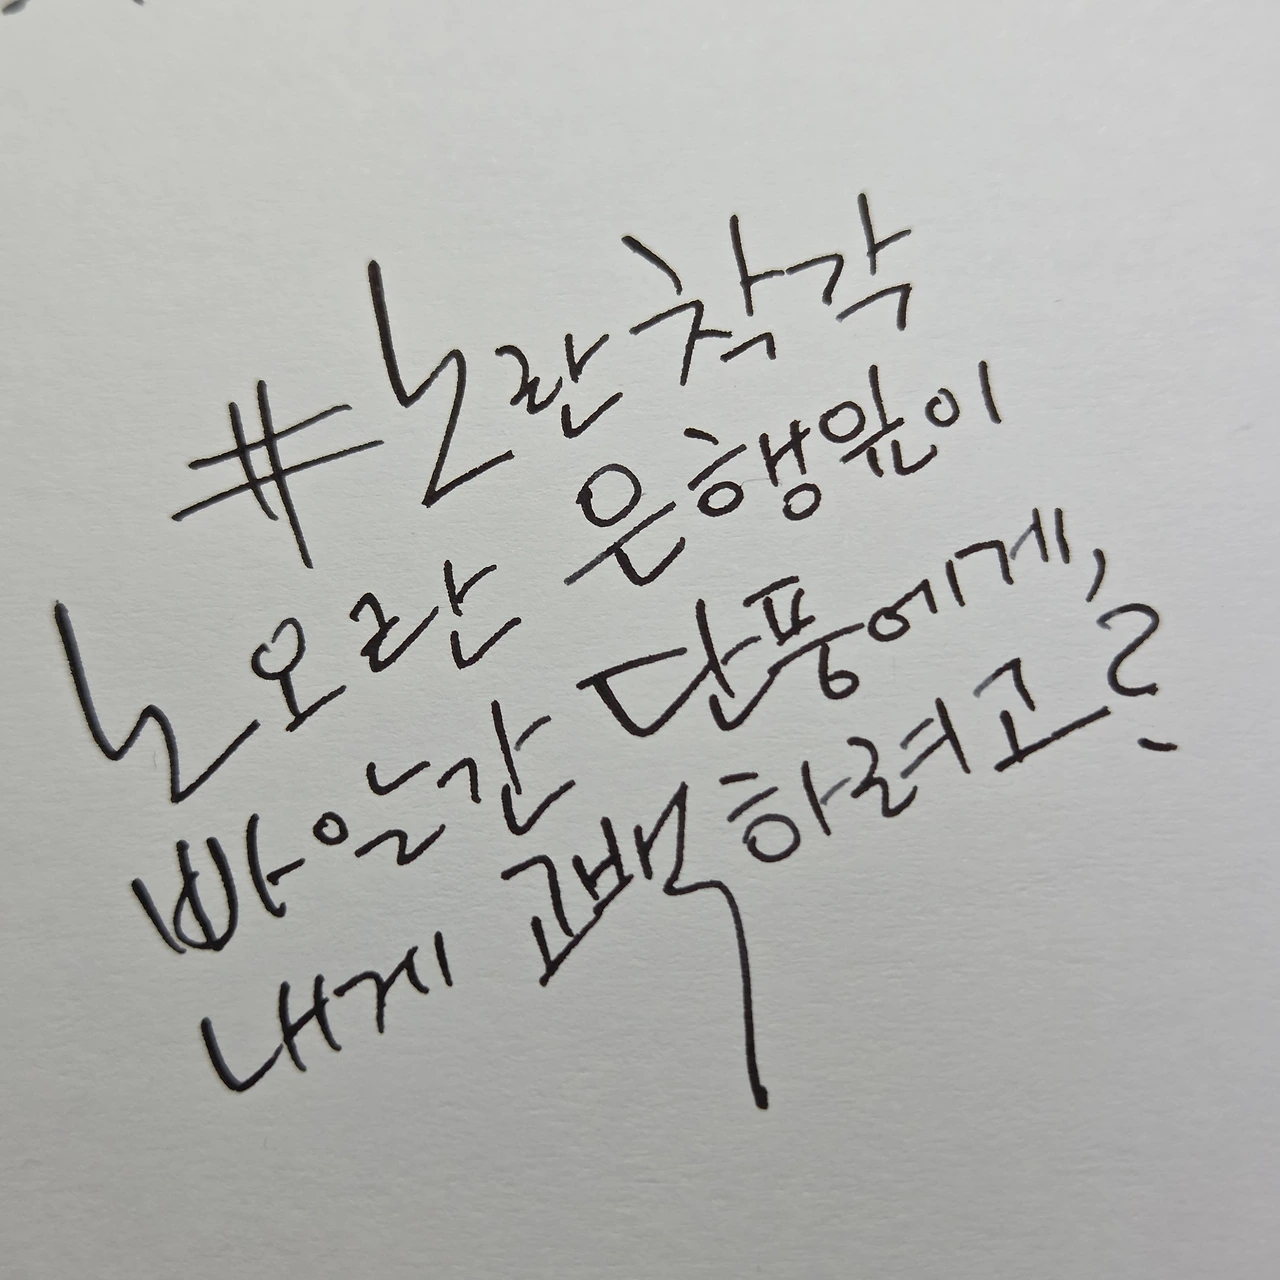 #노란 착각
노오란 은행잎이
빠알간 단풍에게,
내게 고백하려고?